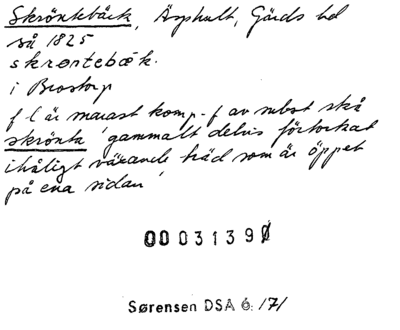 Skröntebäck, Äsphult, Gärds hd
så 1825
skrøntebæk.
i Brostorp
f l är manast komp.f av subst skå
skrönta 'gammalt delvis förtorkat
ihåligt växande träd som är öppet
på ena sidan'
00 031390
Sørensen DSA 6: 171